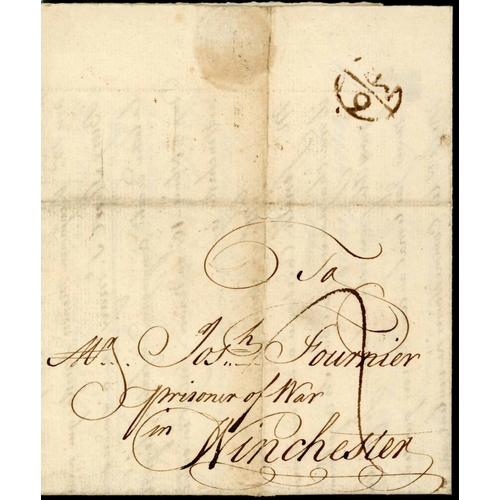 To
Mr. Josh Fournier
prisoner of War
in Winchester